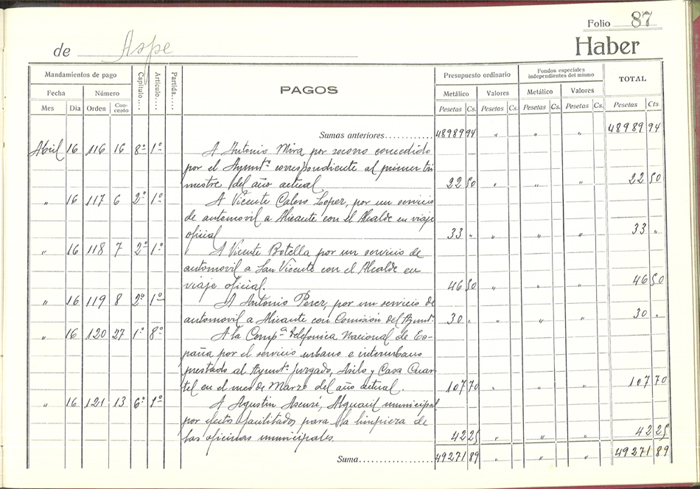 Folio 87
de Aspe Haber
Mandamientos de pago Capítulo Artículo Partida PAGOS Presupuesto ordinario Fondos especiales independientes del mismo TOTAL
Fecha Número Metálico Valores Metálico Valores
Mes Día Orden Con- cepto Pesetas Cs. Pesetas Cs. Pesetas Cs. Pesetas Cs. Pesetas Cts
Sumas anteriores 48989 94 " " " 48989 94
Abril 16 116 16 8º 1º A Antonio Mira por socorro concedido
por el Ayuntº correspondiente al primer tri
mestre del año actual 22 50 " " " 22 50
" 16 117 6 2º 1º A Vicente Calero Lopez, por un servicio
de automovil a Alicante con el Alcalde en viaje
oficial 33 " " " " 33 "
" 16 118 7 2º 1º A Vicente Botella por un servicio de
automovil a San Vicente con el Alcalde en
viaje oficial. 46 50 " " " 46 50
" 16 119 8 2º 1º A Antonio Perez, por un servicio de
automovil a Alicante con Comision del Ayuntº 30 " " " " 30 "
" 16 120 27 1º 8º A la Compª Telefonica Nacional de Es-
paña por el servicio urbano e interurbano
prestado al Ayuntº Juzgado, Asilo y Casa Cuar-
tel en el mes de Marzo del año actual. 107 70 " " " 107 70
" 16 121 13 6º 1º A Agustin Asencí, Alguacil municipal
por efectos facilitados para la limpieza de
las oficinas municipales. 42 25 " " " 42 25
Suma 49271 89 " " " 49271 89